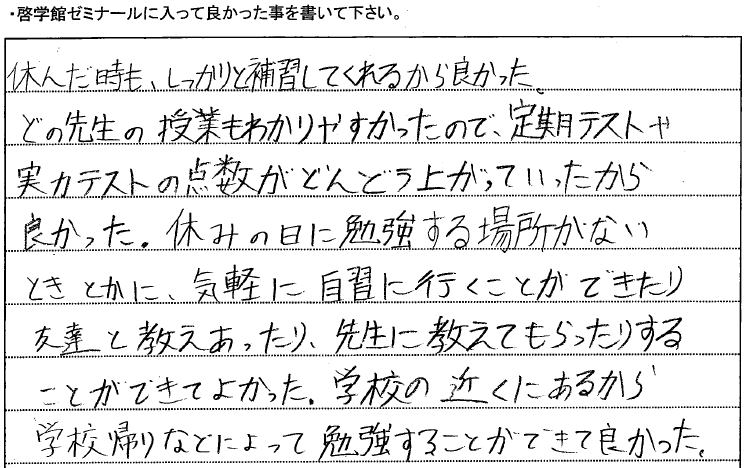 ・啓学館ゼミナールに入って良かった事を書いて下さい。
休んだ時も、しっかりと補習してくれるから良かった。
どの先生の授業もわかりやすかったので、定期テストや
実力テストの点数がどんどう上がっていったから
良かった。休みの日に勉強する場所がない
ときとかに、気軽に自習に行くことができたり
友達と教えあったり、先生に教えてもらったりする
ことができてよかった。学校の近くにあるから
学校帰りなどによって勉強することができて良かった。